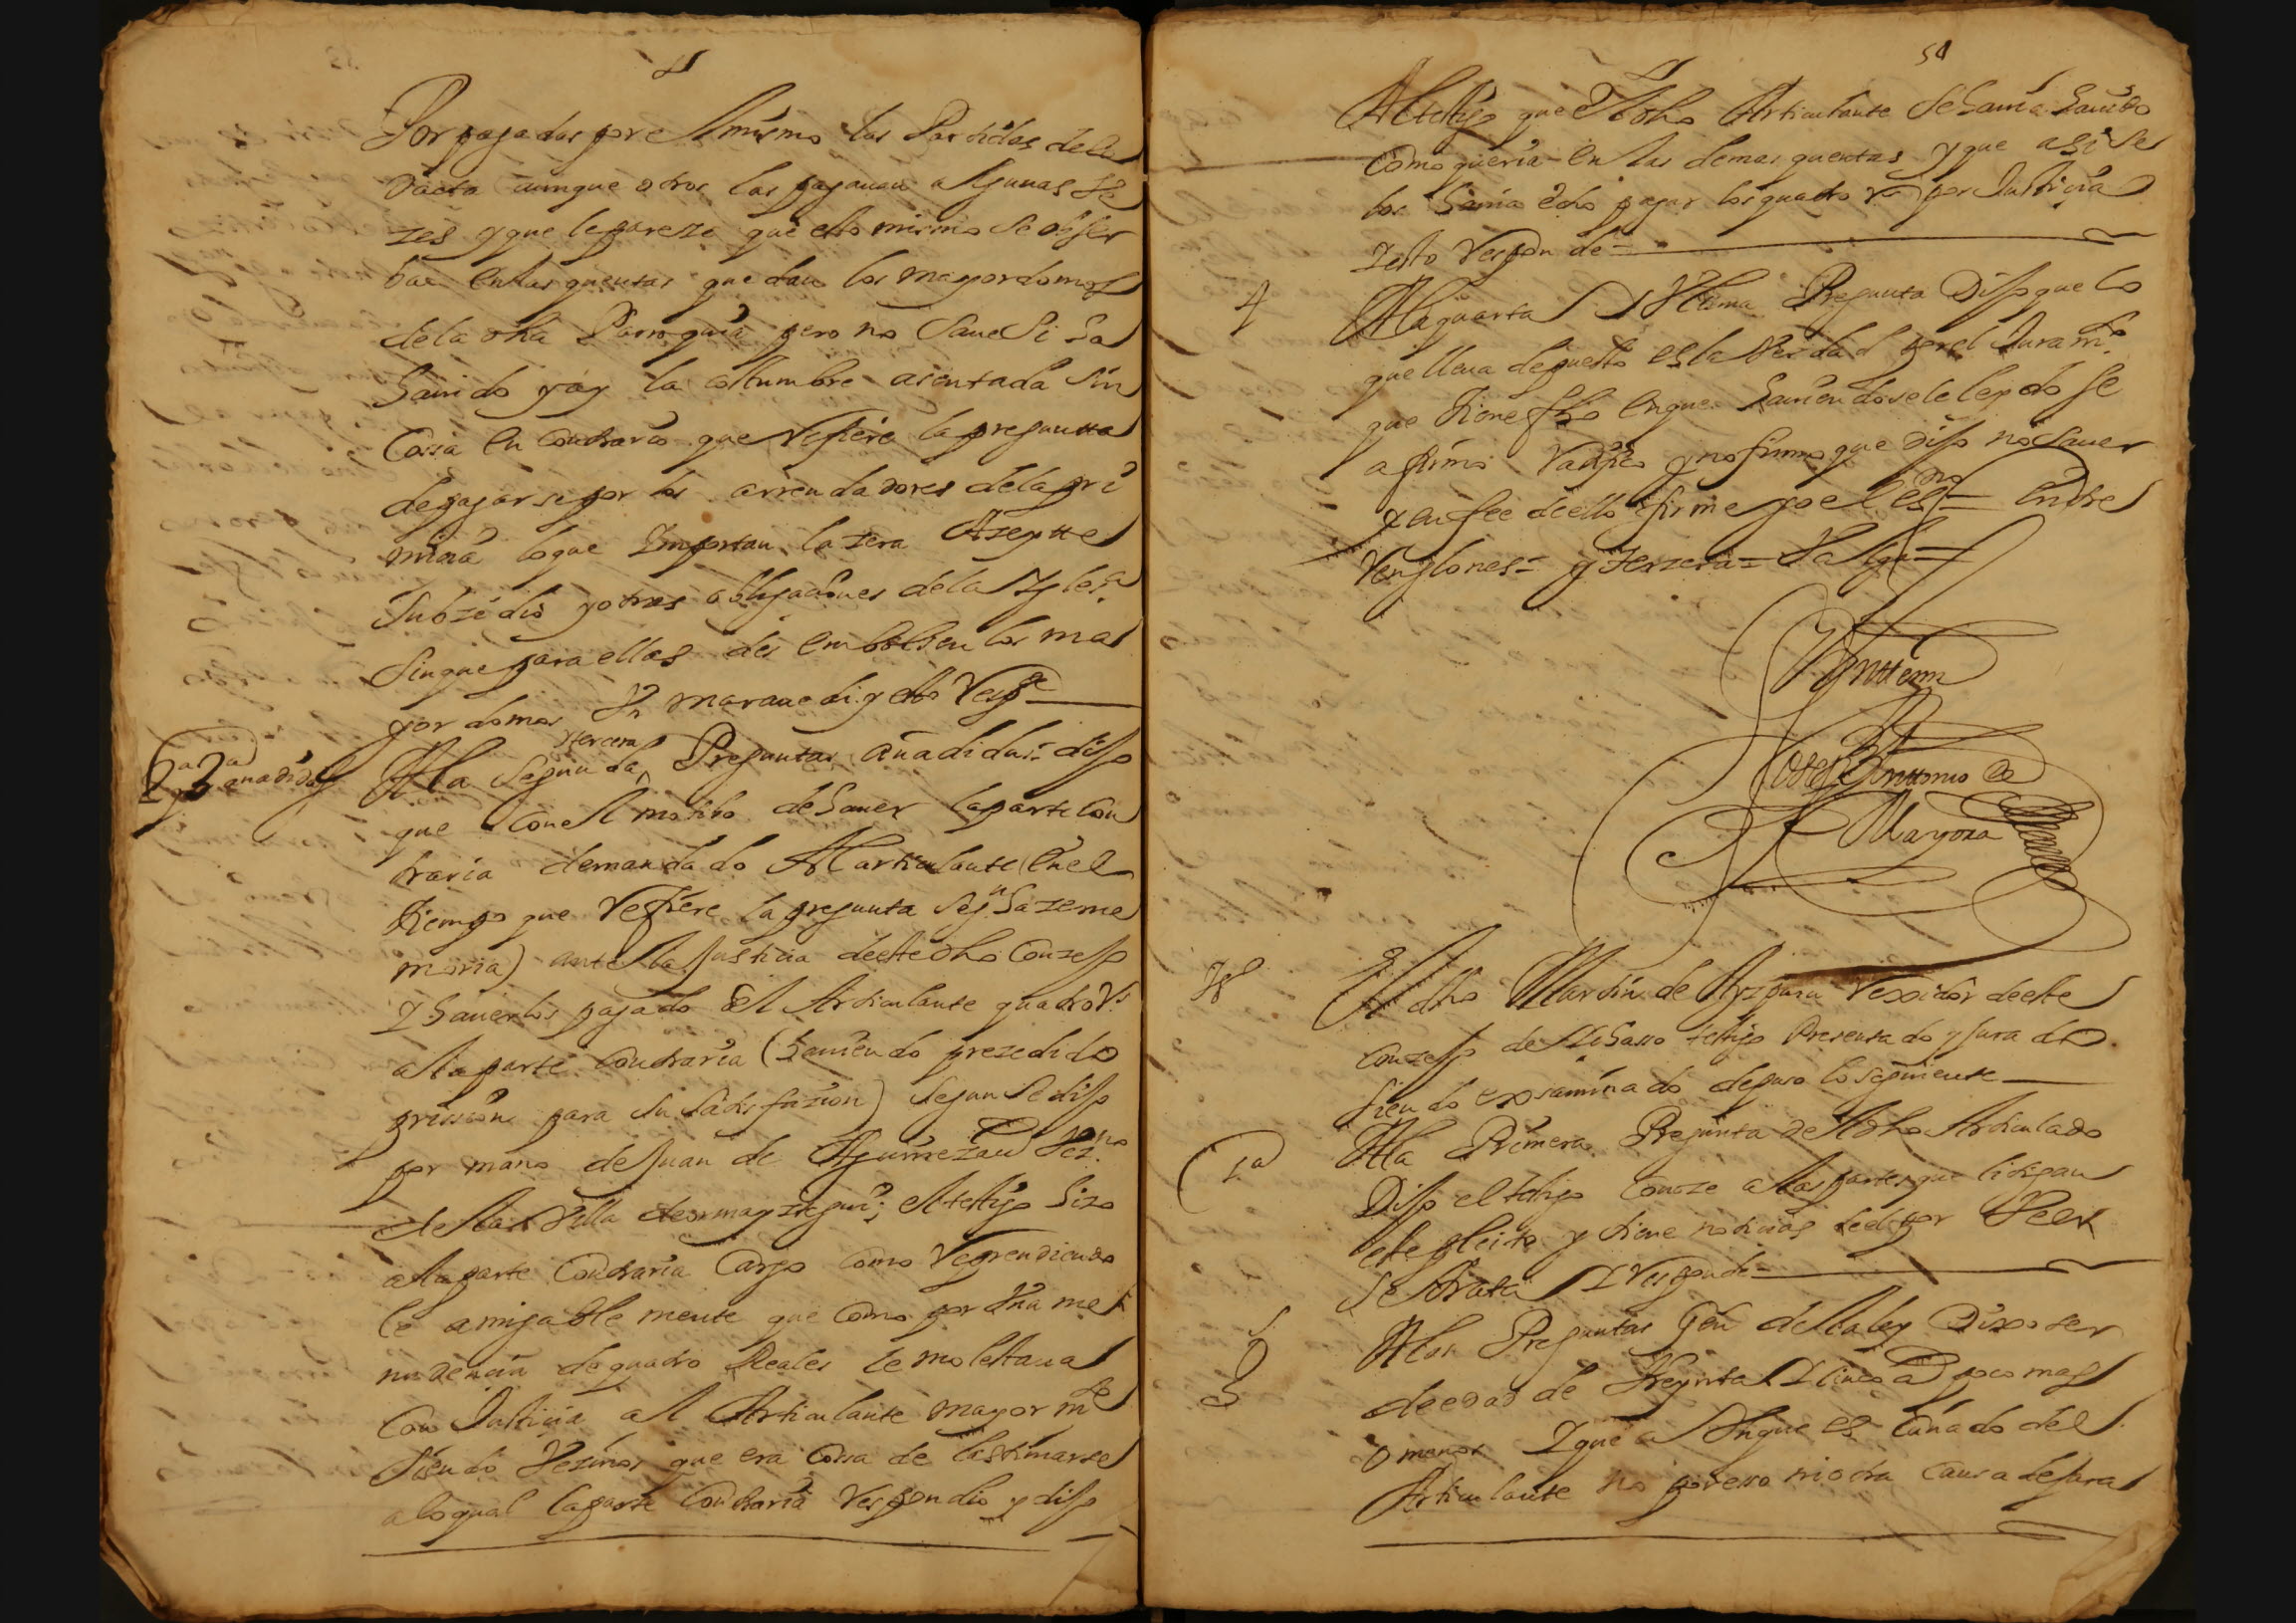 Por pagadas por el mismo las Partidas de la
Dacta aunque otros las pagauan algunas ve
zes y que le pareze que esto mismo se obser
bae en las quentas que dan los mayordomos
de la dha Parroquia pero no saue si ha
hauido y ay la costumbre asentada sin
cossa en contrario que refiere la pregunta
de pagarse por los arrendadores de la pri
micia lo que importan la zera Azeytte
subzidio y otras obligaciones de la Iglesª
sin que para ellas des embolsen los ma
yordomos Un marauedi. y esto respde
2ª y 3ª anadidas
A la segunda y tercera Preguntas añadidas dijo
que con el motibo de hauer la parte con
traria demandado Al articulante (en el
tiempo que refiere la pregunta segn haze me
moria) ante la Justicia de este dho Conzejo
Y hauerlos pagado el Articulante quatro rs
a la parte contraria (hauiendo prezedido
prission para su satisfazion) segun se dijo
por mano de Juan de Aguirrezau vezno
de la Villa de ormayztegui; el testigo hizo
a la parte contraria Cargo como reprendiendo
le amigablemente que como por Una me
nudencia de quatro Reales le molestaua
con Justicia al Articulante mayor mte
siendo Vezinos que era cossa de lastimarse
a lo qual la parte contraria respondio y dijo
54
Al testigo que el dho Articulante se hauia hauido
como queria en las demas quentas y que asi se
los hauia echo pagar los quatro rs por Justicia
y esto responde =
4
A la quarta y Ultima Pregunta Dijo que lo
que lleua depuesto es la verdad por el Juramto
que tiene fho en que hauiendosele leydo se
afirmo ratifico y no firmo que dijo no sauer
y en fee de ello firme yo el essno = entre
renglones = y terzera = Valga =
Antte mi
Joseph Anttonio de
Mayora
El dho Martin de Ayzpuru rexidor de este
conzejo de testigo Presentado y jurado
siendo exsaminado depuso lo siguiente
1ª
A la Primera Pregunta del dho Articulado
Dijo el testigo conoze a las partes que litigan
este pleito y tiene noticias de el por Veer
se trata Y responde =
A las Preguntas Gen de la ley Dixo ser
de edad de treynta Y cinco as poco mas
o menos Y que a unque es Cuñado del
Articulante no por esso ni otra causa dejara